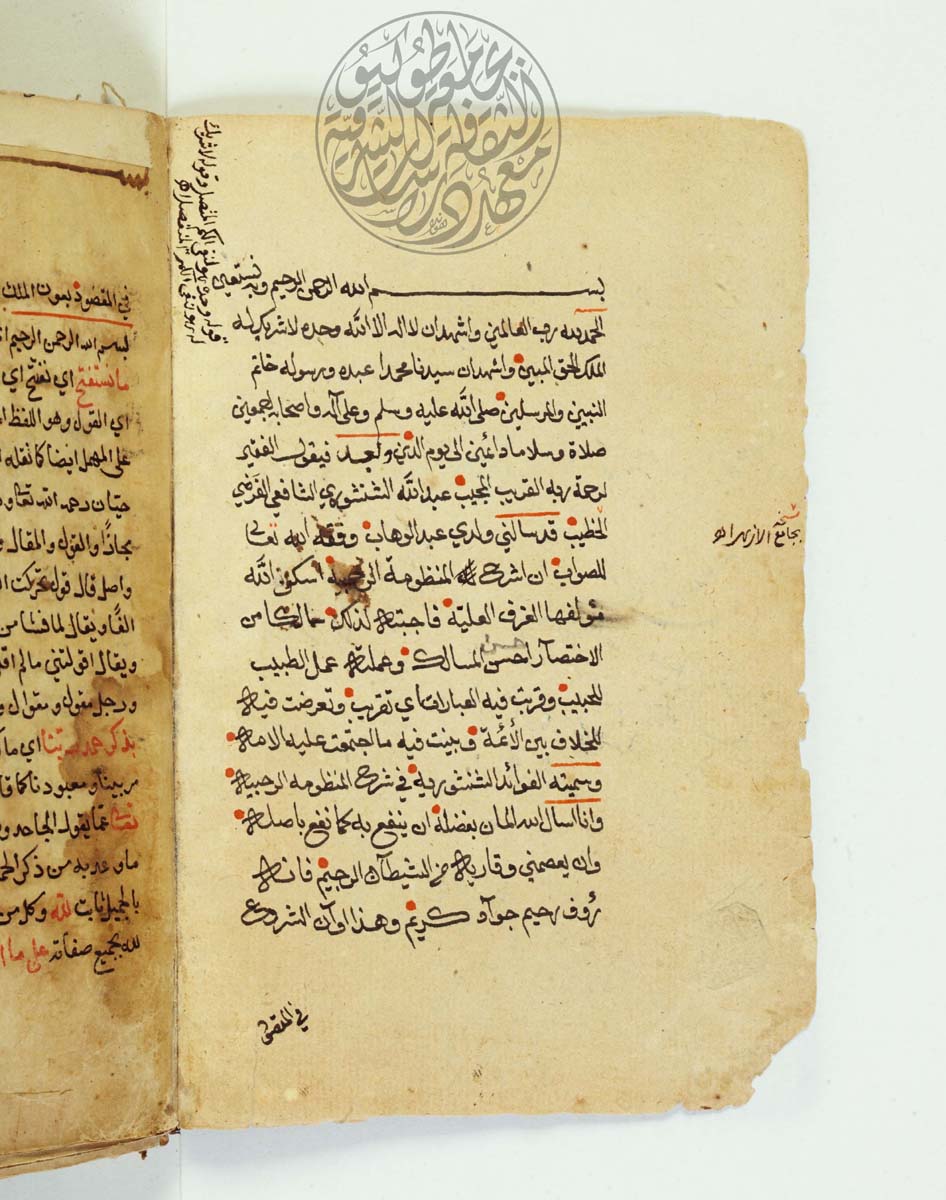 بسم الله الرحمن الرحيم وبه نستعين
الحمد لله رب العالمين واشهد ان لا اله الا الله وحده لا شريك له
الملك الحق المبين واشهد ان سيدنا محمدا عبده ورسوله خاتم
النبين والمرسلين صلى الله عليه وسلم وعلى آله واصحابه اجمعين
صلاة وسلاما دائمين الى يوم الدين وبعد فيقول الفقير
لرحمة ربه القريب المجيب عبد الله الشنشوري الشافعي الفرضي
الخطيب قد سالني ولدي عبد الوهاب وفقه الله تعالى
للصواب ان اشرح المنظومة الرحبية اسكن الله
مؤلفها الغرف العلية فاجبته لذلك سالكا من
الاختصار احسن المسالك وعملته عمل الطبيب
للحبيب وقربت فيه العبارات اي تقريب وتعرضت فيه
للخلاف بين الأئمة وبينت فيه ما اجتمعت عليه الامة
وسميته الفوائد الشنشورية في شرح المنظومه الرحبية
وانا اسال الله المنان بفضله ان ينفع به كما نفع باصله
وان يعصمني وقاريه من الشيطان الرجيم فانه
رؤف رحيم جواد كريم وهذا اوان الشروع
في المقصو
بجامع الازهر اه
قوله وحده هو لنفي الكم المتصل وقوله لا شريك
له هو لنفي الكم المنفصل اه
في المقصود بعون الملك
بسم الله الرحمن الرحيم
ما نستفتح اي نفتح اي
اي القول وهو اللفظ
على المهمل ايضا كما نقله
حيان رحمه الله تعالى
مجازا والقول والمقال
واصل قال قول تحركت
الفا ويقال لما فشا من
ويقال اقولتني ما لم اقل
ورجل مقول ومقوال
بذكر حمد ربنا اي
مربينا ومعبودنا كما
تعالى عما يقول الجاحد
ما وعد به من ذكر
بالجميل ثابت لله وكل من
لله بجميع صفاته على ما
معهد دراسات الثقافة الشرقية
بجامعة طوكيو